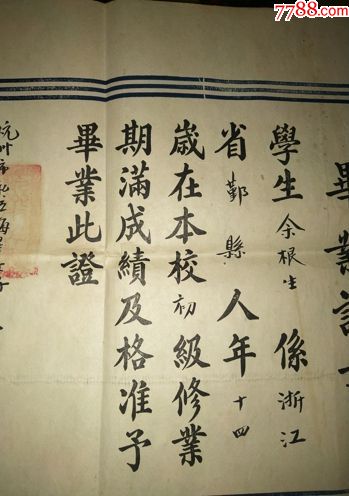 7788.com
畢業證
學生余根生係浙江
省鄞縣人年十四
歲在本校初級修業
期滿成績及格准予
畢業此證
杭州市